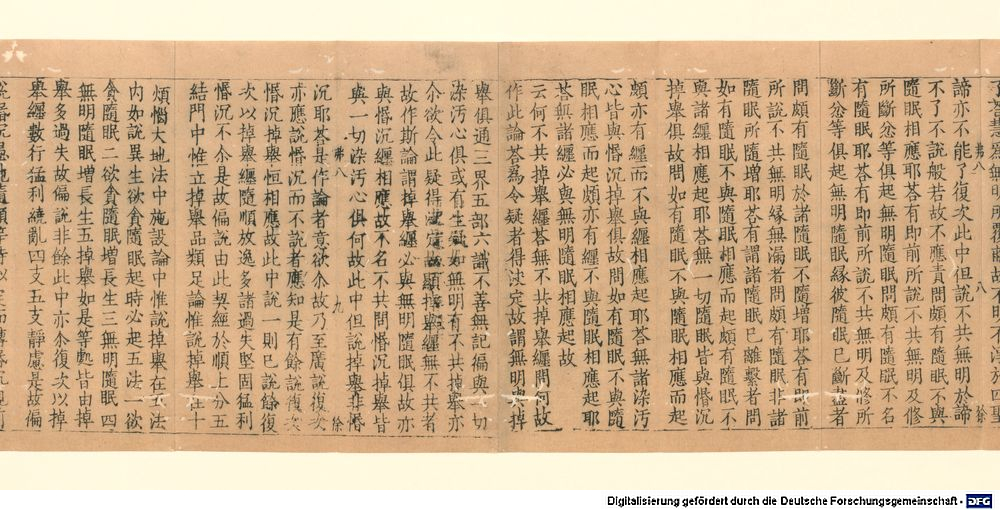 諦亦不能了復次此中但說不共無明於諦
不了不說般若故不應責問頗有隨眠不與
隨眠相應耶荅有即前所說不共無明及修
所斷忿等俱起無明隨眠問頗有隨眠不名
有隨眠耶荅有即前所說不共無明及修所
斷忿等俱起無明隨眠緣彼隨眠已斷盡者
問頗有隨眠於諸隨眠不隨增耶荅有即前
所說不共無明緣無漏者問頗有隨眠非諸
隨眠所隨增耶荅有謂諸隨眠已離繫者問
如有隨眠不與隨眠相應而起頗有隨眠不
與諸纏相應起耶荅無一切隨眠皆與惛沉
掉舉俱故問如有隨眠不與隨眠相應而起
頗亦有纏而不與纏相應起耶荅無諸染汚
心皆與惛沉掉舉俱故問如有隨眠不與隨
眠相應而起頗亦有纏不與隨眠相應起耶
荅無諸纏必與無明隨眠相應起故
云何不共掉舉纏荅無不共掉舉纏問何故
作此論荅爲令疑者得決定故謂無明與掉
舉俱通三界五部六識不善無記徧與一切
染汚心俱或有生疑如無明有不共掉舉亦
尒欲令此疑得決定故顯掉舉纏無不共者
故作斯論謂掉舉纏必與無明隨眠俱故亦
與惛沉纏相應故不名不共問惛沉掉舉皆
與一切染汚心俱何故此中但說掉舉非惛
弗八
九
徐
沉耶荅是作論者意欲尒故乃至廣說復次
亦應說惛沉而不說者應知是有餘說復次
惛沉掉舉恒相應故此中說一則已說餘復
次以掉舉纏隨順放逸多諸過失堅固猛利
惛沉不尒是故偏說由此契經於順上分五
結門中惟立掉舉品類足論惟說掉舉在十
煩惱大地法中施設論中惟說掉舉在五法
內如說異生欲貪隨眠起時必起五法一欲
貪隨眠二欲貪隨眠增長生三無明隨眠四
無明隨眠增長生五掉舉如是等甄皆由掉
舉多過失故偏說非餘此中亦尒復次以掉
舉纏數行猛利繞亂四支五支靜慮是故偏
Digitalisierung gefördert durch die Deutsche Forschungsgemeinschaft - DFG